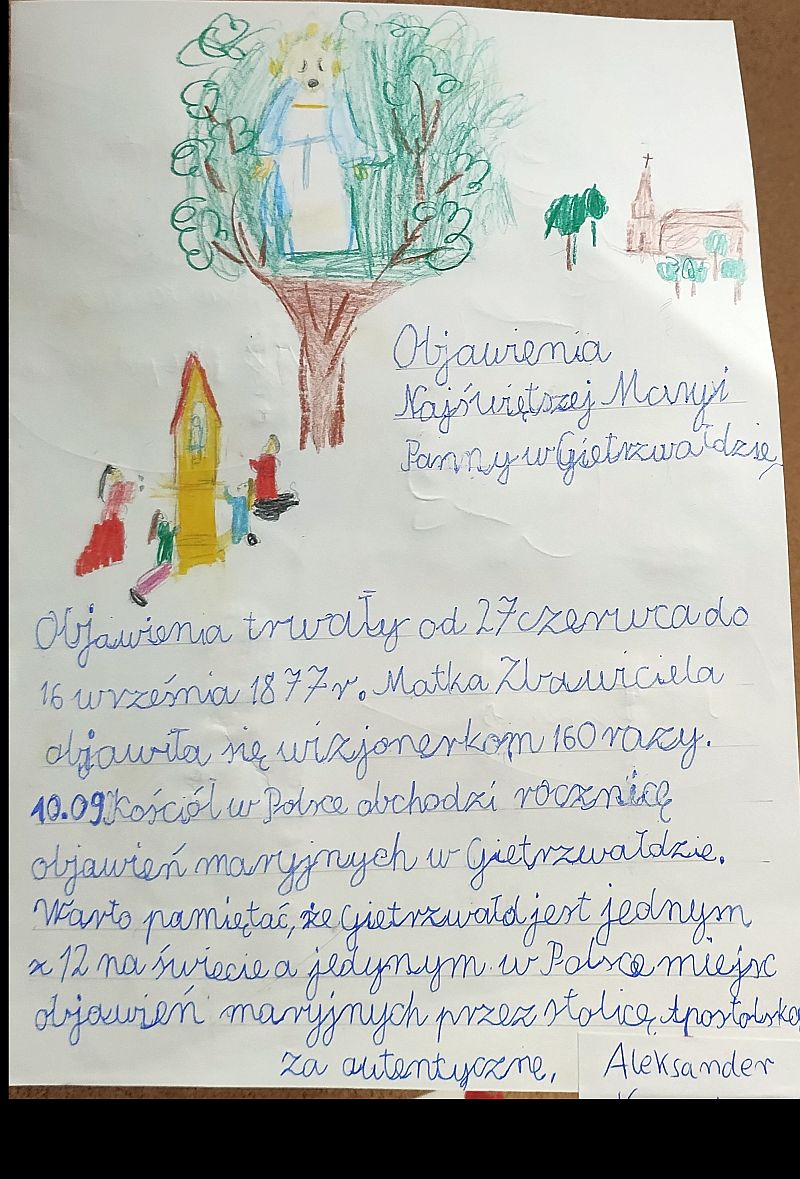 Objawienia
Najświętszej Maryi
Panny w Gietrzwałdzie
Objawienia trwały od 27 czerwca do
16 września 1877 r. Matka Zbawiciela
objawiła się wizjonerkom 160 razy.
10.09 Kościół w Polsce obchodzi rocznicę
objawień maryjnych w Gietrzwałdzie.
Warto pamiętać, że Gietrzwałd jest jednym
z 12 na świecie a jedynym w Polsce miejsc
objawień maryjnych przez stolicę Apostolską
za autentyczne,
Aleksander